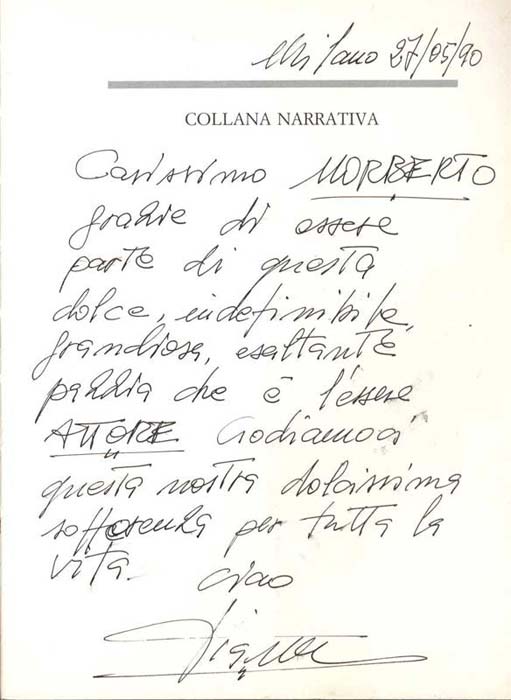 Milano 27/05/90
COLLANA NARRATIVA
Carissimo NORBERTO
grazie di essere
parte di questa
dolce, indefinibile,
grandiosa, esaltante
pazzia che è l'essere
ATTORE Godiamoci
questa nostra dolcissima
sofferenza per tutta la
vita.
ciao